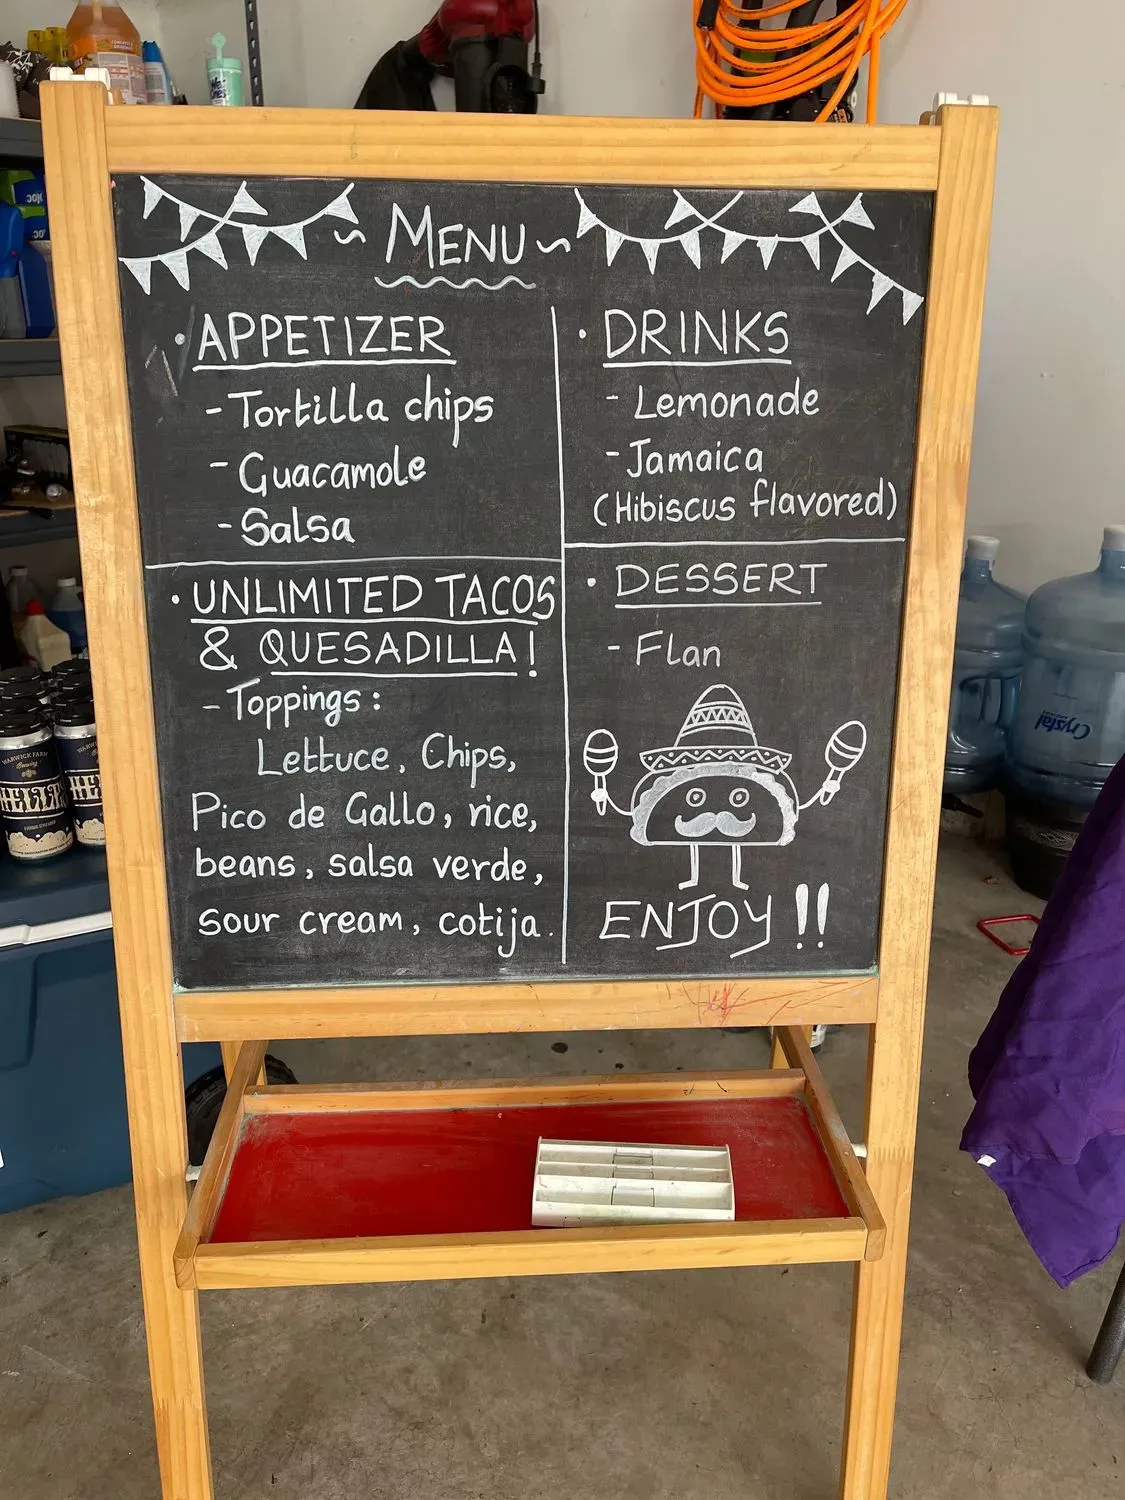 ~ MENU ~
• APPETIZER
- Tortilla chips
- Guacamole
- Salsa
• UNLIMITED TACOS
& QUESADILLA!
- Toppings:
Lettuce, Chips,
Pico de Gallo, rice,
beans, salsa verde,
sour cream, cotija.
• DRINKS
- Lemonade
- Jamaica
(Hibiscus flavored)
• DESSERT
- Flan
ENJOY!!
WARWICK FARM
Brewing
Crystal